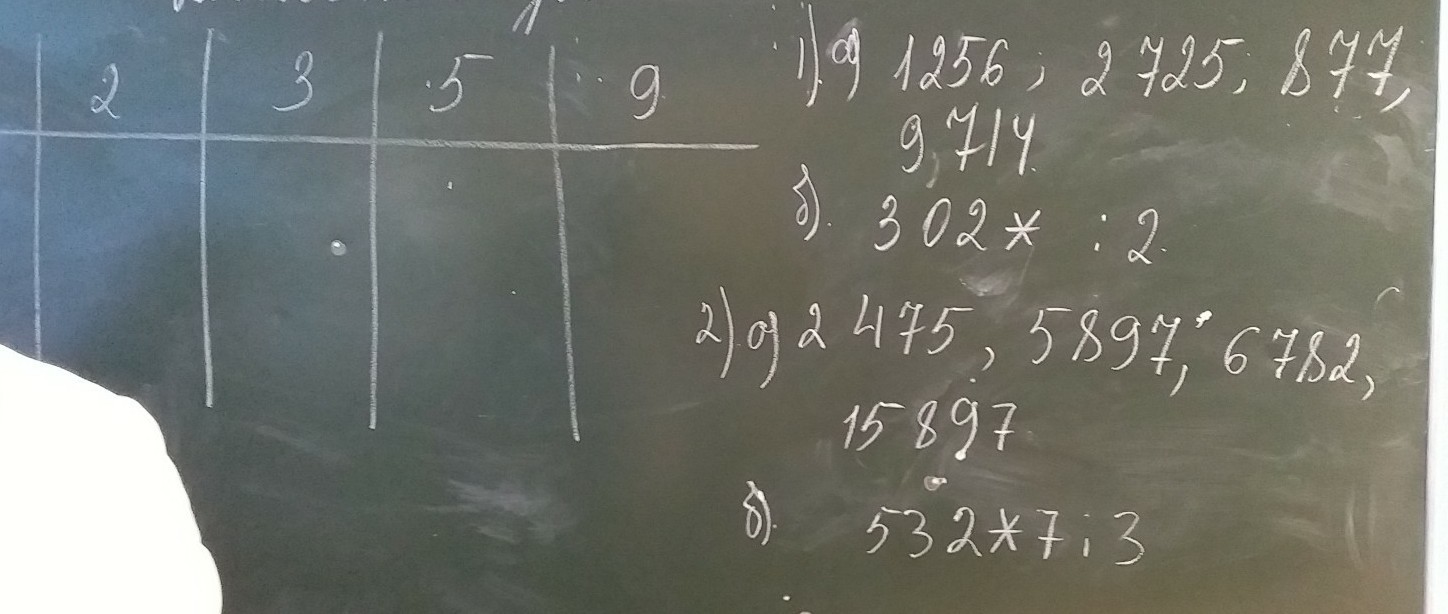 2 3 5 9
1) а) 1256; 2725; 877,
9,714
б). 302* : 2.
2) а) 2475, 5897, 6782,
15897
б). 532*7 : 3